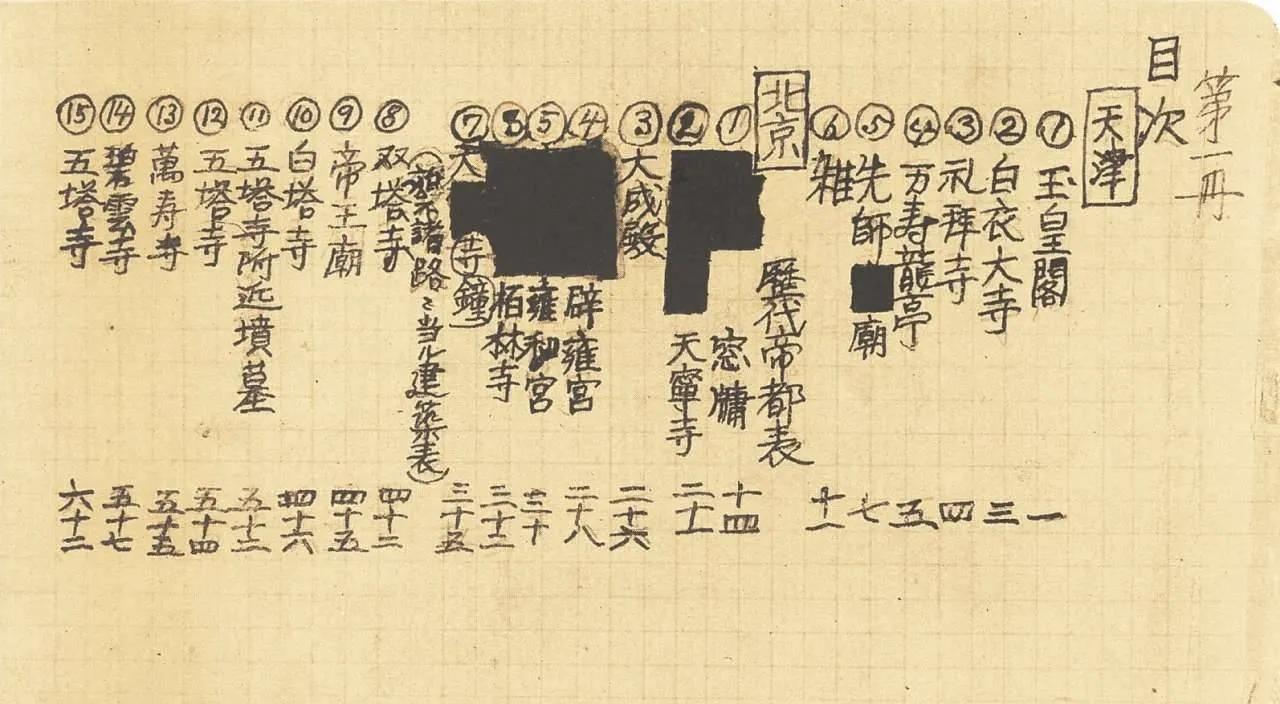 第一冊
目次
天津
① 玉皇閣 一
② 白衣大寺 三
③ 礼拝寺 四
④ 万寿龍亭 五
⑤ 先師廟 七
⑥ 雑 十一
北京
歴代帝都表
① 窓牖 十四
② 天寧寺 二十一
③ 大成殿 二十六
④ 辟雍宮 二十八
⑤ 雍和宮 三十
⑥ 柏林寺 三十二
⑦ 大(寺鐘) 三十五
諸路ニ当ル建築表)
⑧ 双塔寺 四十二
⑨ 帝王廟 四十五
⑩ 白塔寺 四十六
⑪ 五塔寺附近墳墓 五十二
⑫ 五塔寺 五十四
⑬ 萬寿寺 五十五
⑭ 碧雲寺 五十七
⑮ 五塔寺 六十二